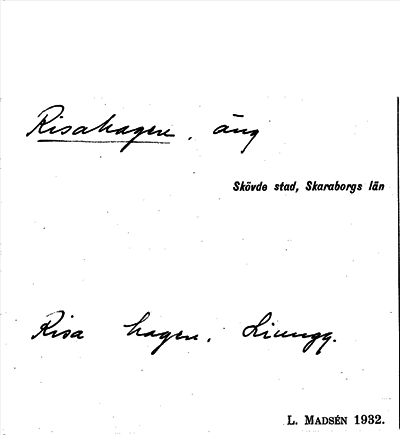 Risahagen. äng
Skövde stad, Skaraborgs län
Risa hagen. Liungg.
L. MADSÉN 1932.